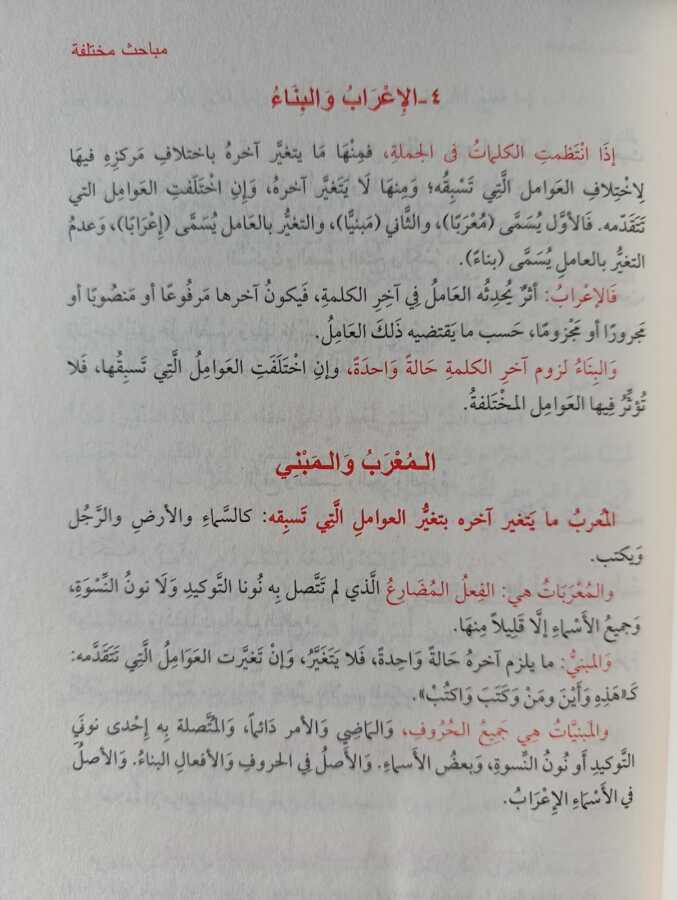 مباحث مختلفة
٤-الإِعْرَابُ وَالبِنَاءُ
إِذَا انْتَظمتِ الكلماتُ في الجملةِ، فمِنْهَا مَا يتغيَّر آخرهُ باختلافِ مَركزِهِ فيهَا
لِاخْتِلافِ العَوَامل الَّتِي تَسْبِقُه؛ وَمِنهَا لَا يَتَغَيَّر آخرهُ، وَإِنِ اخْتَلَفتِ العَوامِل التي
تَتَقَدَّمه. فَالأَوَّل يُسَمَّى (مُعْرَبًا)، والثَّاني (مَبنيًّا)، والتغيُّر بالعامل يُسَمَّى (إِعْرَابًا)، وَعدمُ
التغيُّر بالعاملِ يُسَمَّى (بناءً).
فَالإِعْرابُ: أَثَرٌ يُحدِثُه العَامِلُ في آخِرِ الكلمةِ، فَيكونُ آخرها مَرفُوعًا أو مَنصُوبًا أو
مَجرورًا أو مَجْزومًا، حَسب ما يَقتضيه ذَلكَ العَامِلُ.
وَالبِنَاءُ لزوم آخرِ الكلمةِ حَالةً وَاحدَةً، وإنِ اخْتَلَفَتِ العَوَامِلُ الَّتِي تَسبِقُها، فَلَا
تُؤثِّرُ فِيها العَوامِل المخْتَلفةُ.
المُعْرَبُ وَالمَبْنِي
المُعربُ ما يَتغير آخره بتغيُّر العواملِ الَّتِي تَسبِقه: كالسَّماءِ والأَرضِ والرَّجُل
وَيكتب.
والمُعْرَبَاتُ هي: الفِعلُ المُضَارِعُ الَّذي لم تَتَّصل بِه نُونا التَّوكيدِ وَلَا نونُ النِّسْوَةِ،
وَجميعُ الأَسْماءِ إلَّا قَلِيلاً مِنهَا.
وَالمبنيُّ: ما يلزم آخرهُ حَالةً وَاحِدةً، فَلا يَتَغَيَّرُ، وَإنْ تغيَّرت العَوَامِلُ الَّتِي تَتَقدَّمه:
كَـ«هَذِهِ وَأَيْنَ ومَنْ وَكَتَبَ وَاكتُبْ».
والمَبنيَّاتُ هِي جَميعُ الحُرُوفِ، وَالمَاضِي والأمر دَائماً، وَالمُتَّصلة بِه إِحْدى نونَيِ
التَّوكيدِ أَو نُونُ النِّسوةِ، وَبعضُ الأَسماءِ. وَالأَصلُ في الحروفِ وَالأَفعالِ البناءُ. وَالأَصلُ
في الأَسْمَاءِ الإعْرَابُ.